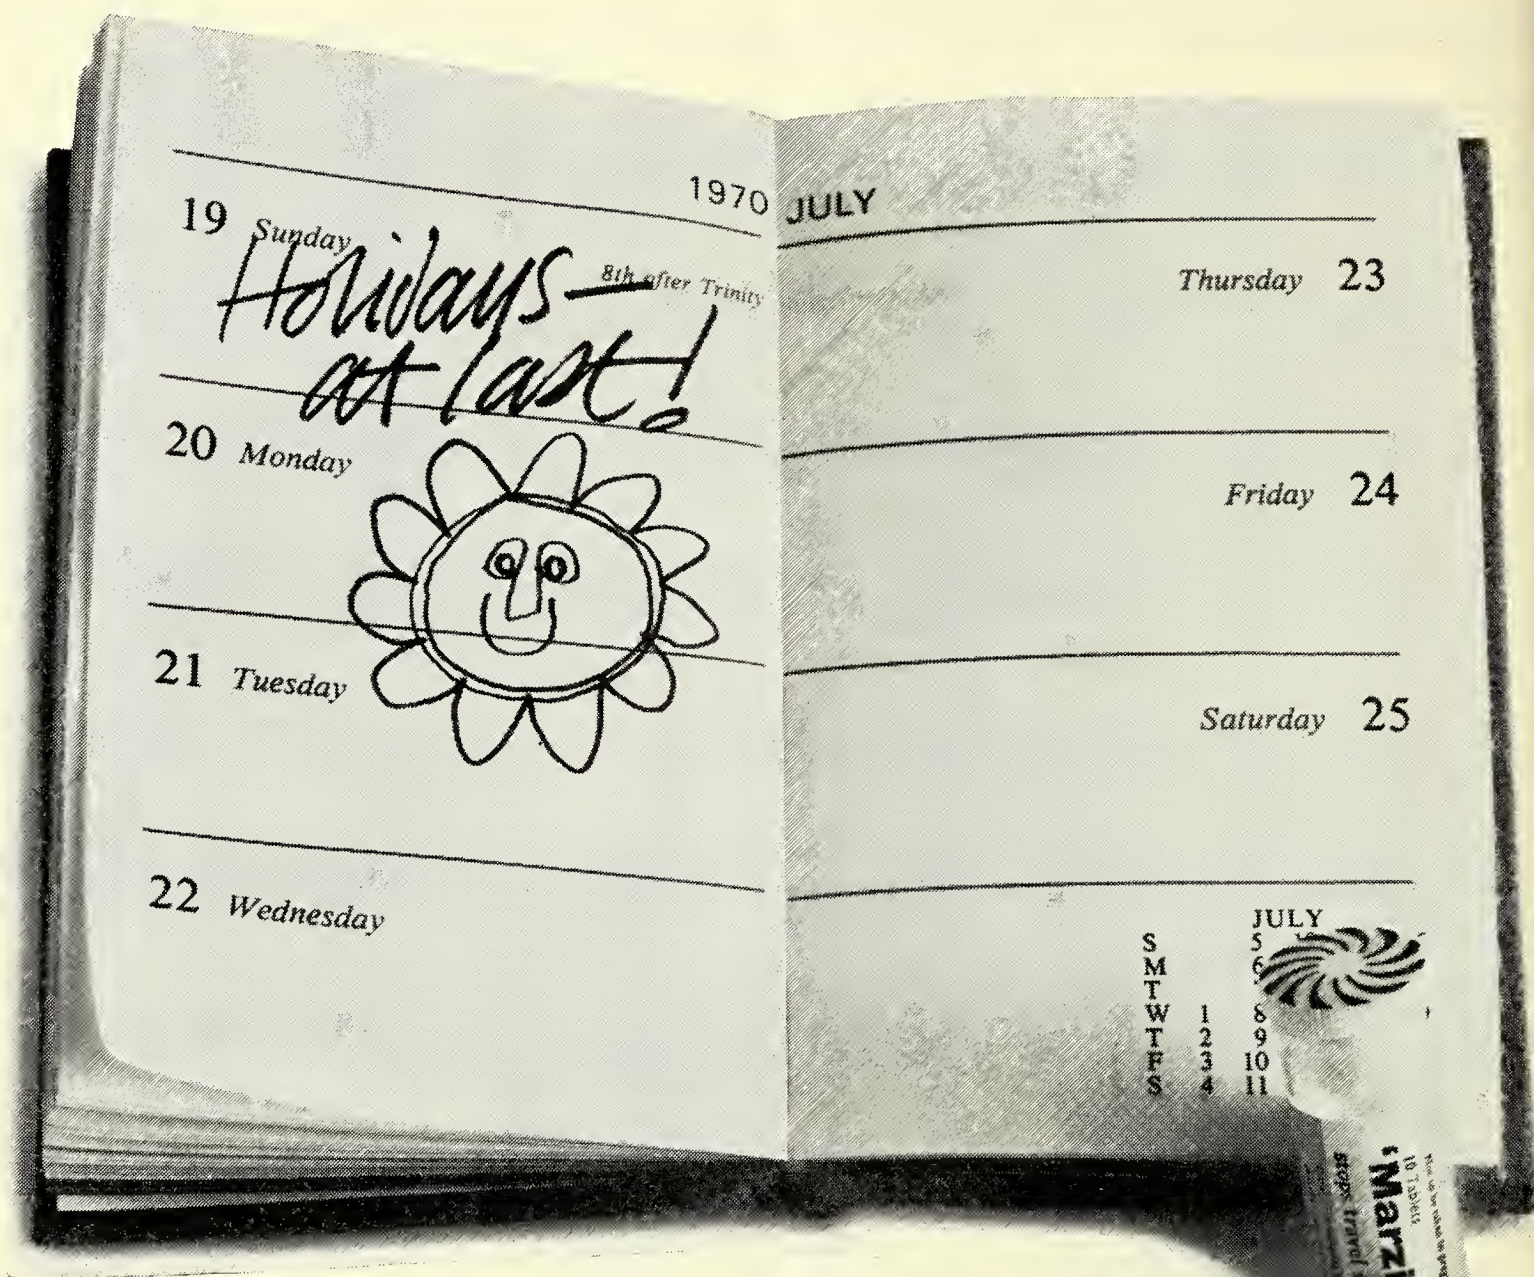 1970 JULY
19 Sunday
8th after Trinity
Holidays—
at last!
20 Monday
21 Tuesday
22 Wednesday
Thursday 23
Friday 24
Saturday 25
JULY
S 5
M 6
T
W 1 8
T 2 9
F 3 10
S 4 11
stops travel
'Marzi
10 Tablets